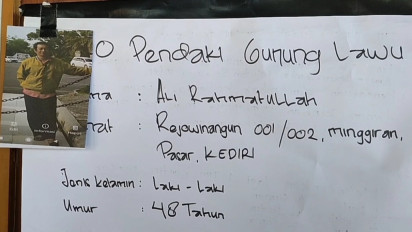 O Pendaki Gunung Lawu
ma : Ali Rahmatullah
mat : Rejowinangun 001/002, minggiran,
Pasar, KEDIRI
Jenis kelamin : Laki - Laki
Umur : 48 Tahun